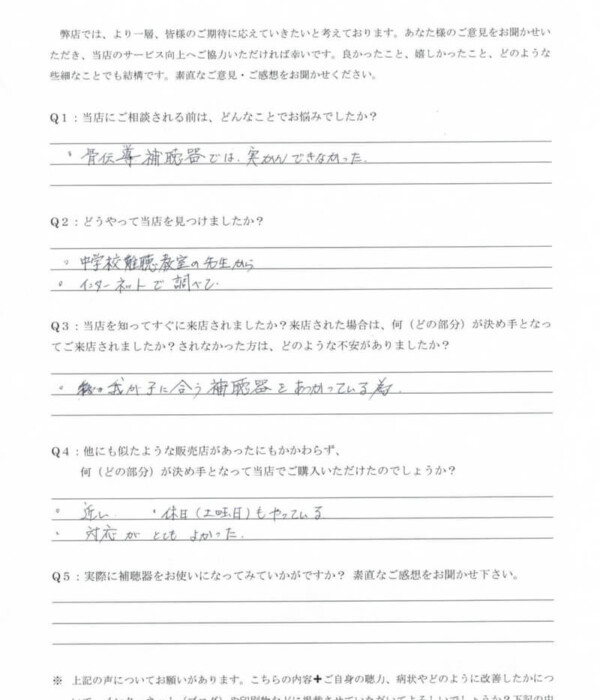 弊店では、より一層、皆様のご期待に応えていきたいと考えております。あなた様のご意見をお聞かせい
ただき、当店のサービス向上へご協力いただければ幸いです。良かったこと、嬉しかったこと、どのような
些細なことでも結構です。素直なご意見・ご感想をお聞かせください。
Q1：当店にご相談される前は、どんなことでお悩みでしたか？
・骨伝導補聴器では、実かんできなかった。
Q2：どうやって当店を見つけましたか？
。中学校難聴教室の先生から
。インターネットで調べて。
Q3：当店を知ってすぐに来店されましたか？来店された場合は、何（どの部分）が決め手となっ
てご来店されましたか？されなかった方は、どのような不安がありましたか？
・我が子に合う補聴器をあつかっている為。
Q4：他にも似たような販売店があったにもかかわらず、
何（どの部分）が決め手となって当店でご購入いただけたのでしょうか？
・近い ・休日（土曜日）もやっている
・対応がとてもよかった。
Q5：実際に補聴器をお使いになってみていかがですか？ 素直なご感想をお聞かせ下さい。
※ 上記の声についてお願いがあります。こちらの内容＋ご自身の聴力、病状やどのように改善したかにつ